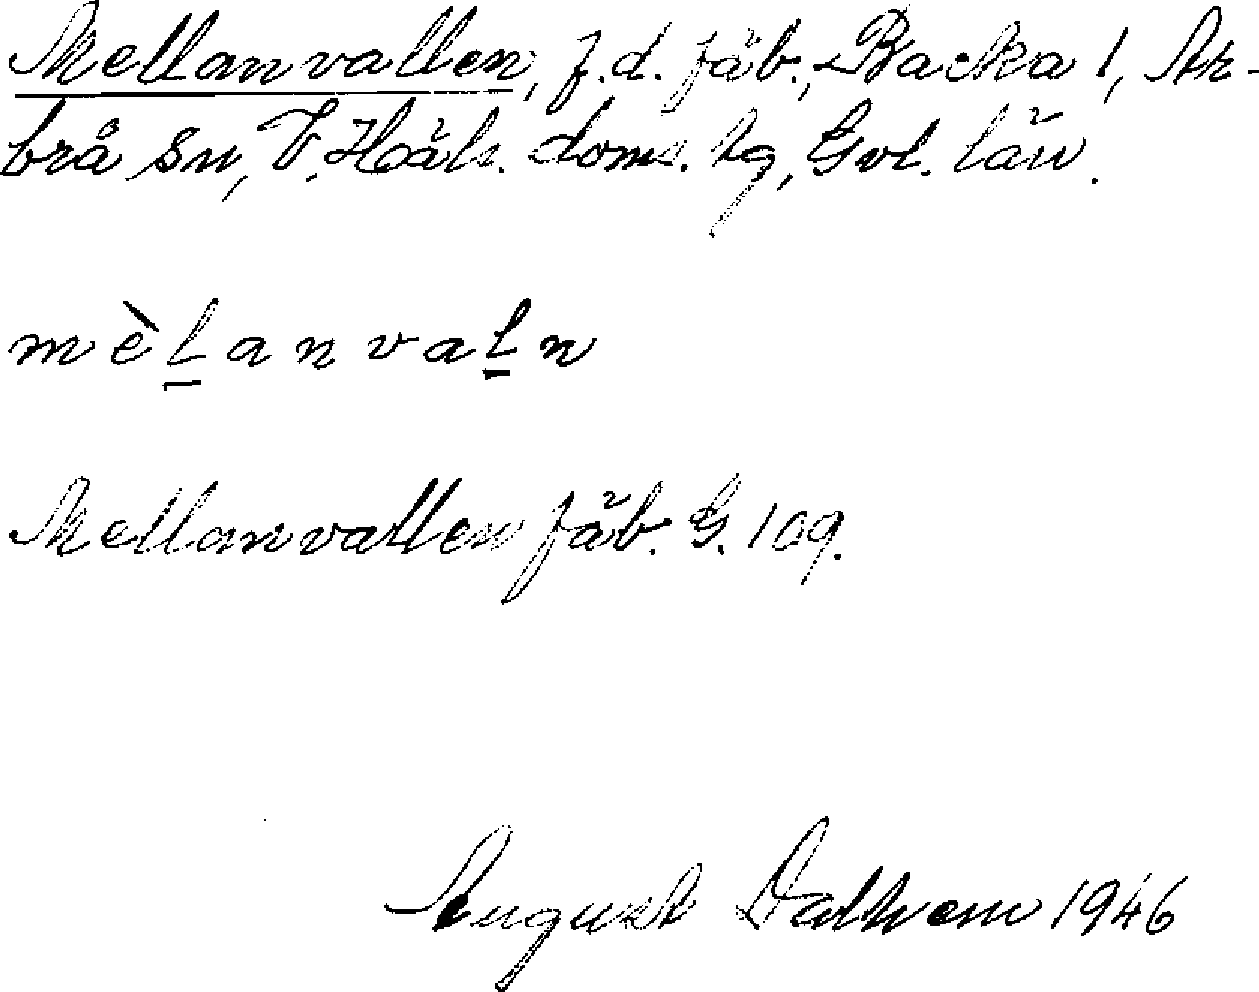 Mellanvallen, f.d. fäb., Backa 1, Ar-
brå sn, V. Häls. doms. tg, Gvl. län.
mèlanvaln
Mellanvallen fäb. G. 109.
August Dalhem 1946